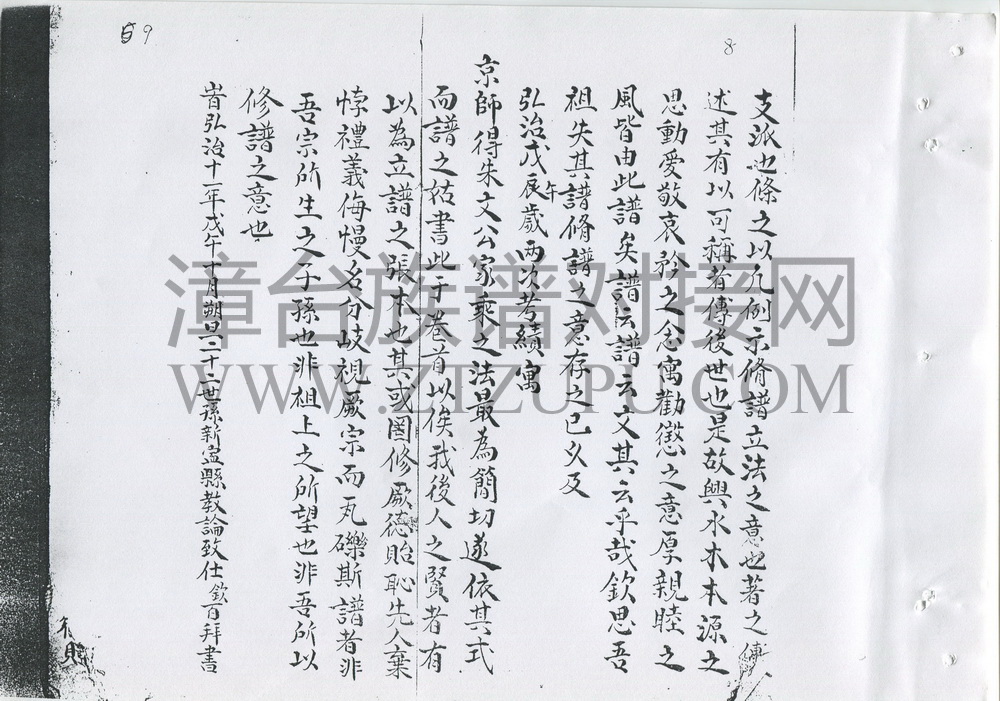 8
支派也條之以凡例示脩譜立法之意也著之傳
述其有以可稱者傳後世也是故興水木本源之
思動愛敬哀矜之念寓勸懲之意厚親睦之
風皆由此譜矣譜云譜云文其云乎哉欽思吾
祖失其譜脩譜之意存之已久及
弘治戊辰歲兩次考績寓
午
京師得朱文公家乘之法最為簡切遂依其式
而譜之姑書此于卷首以俟我後人之賢者有
以為立譜之張本也其或罔修厥德貽恥先人棄
悖禮義侮慢名分歧視厥宗而瓦礫斯譜者非
吾宗所生之子孫也非祖上之所望也非吾所以
修譜之意也
旹弘治十一年戊午十月朔旦二十二世孫新寧縣教諭致仕欽百拜書
9
漳台族谱对接网
WWW.ZTZUPU.COM